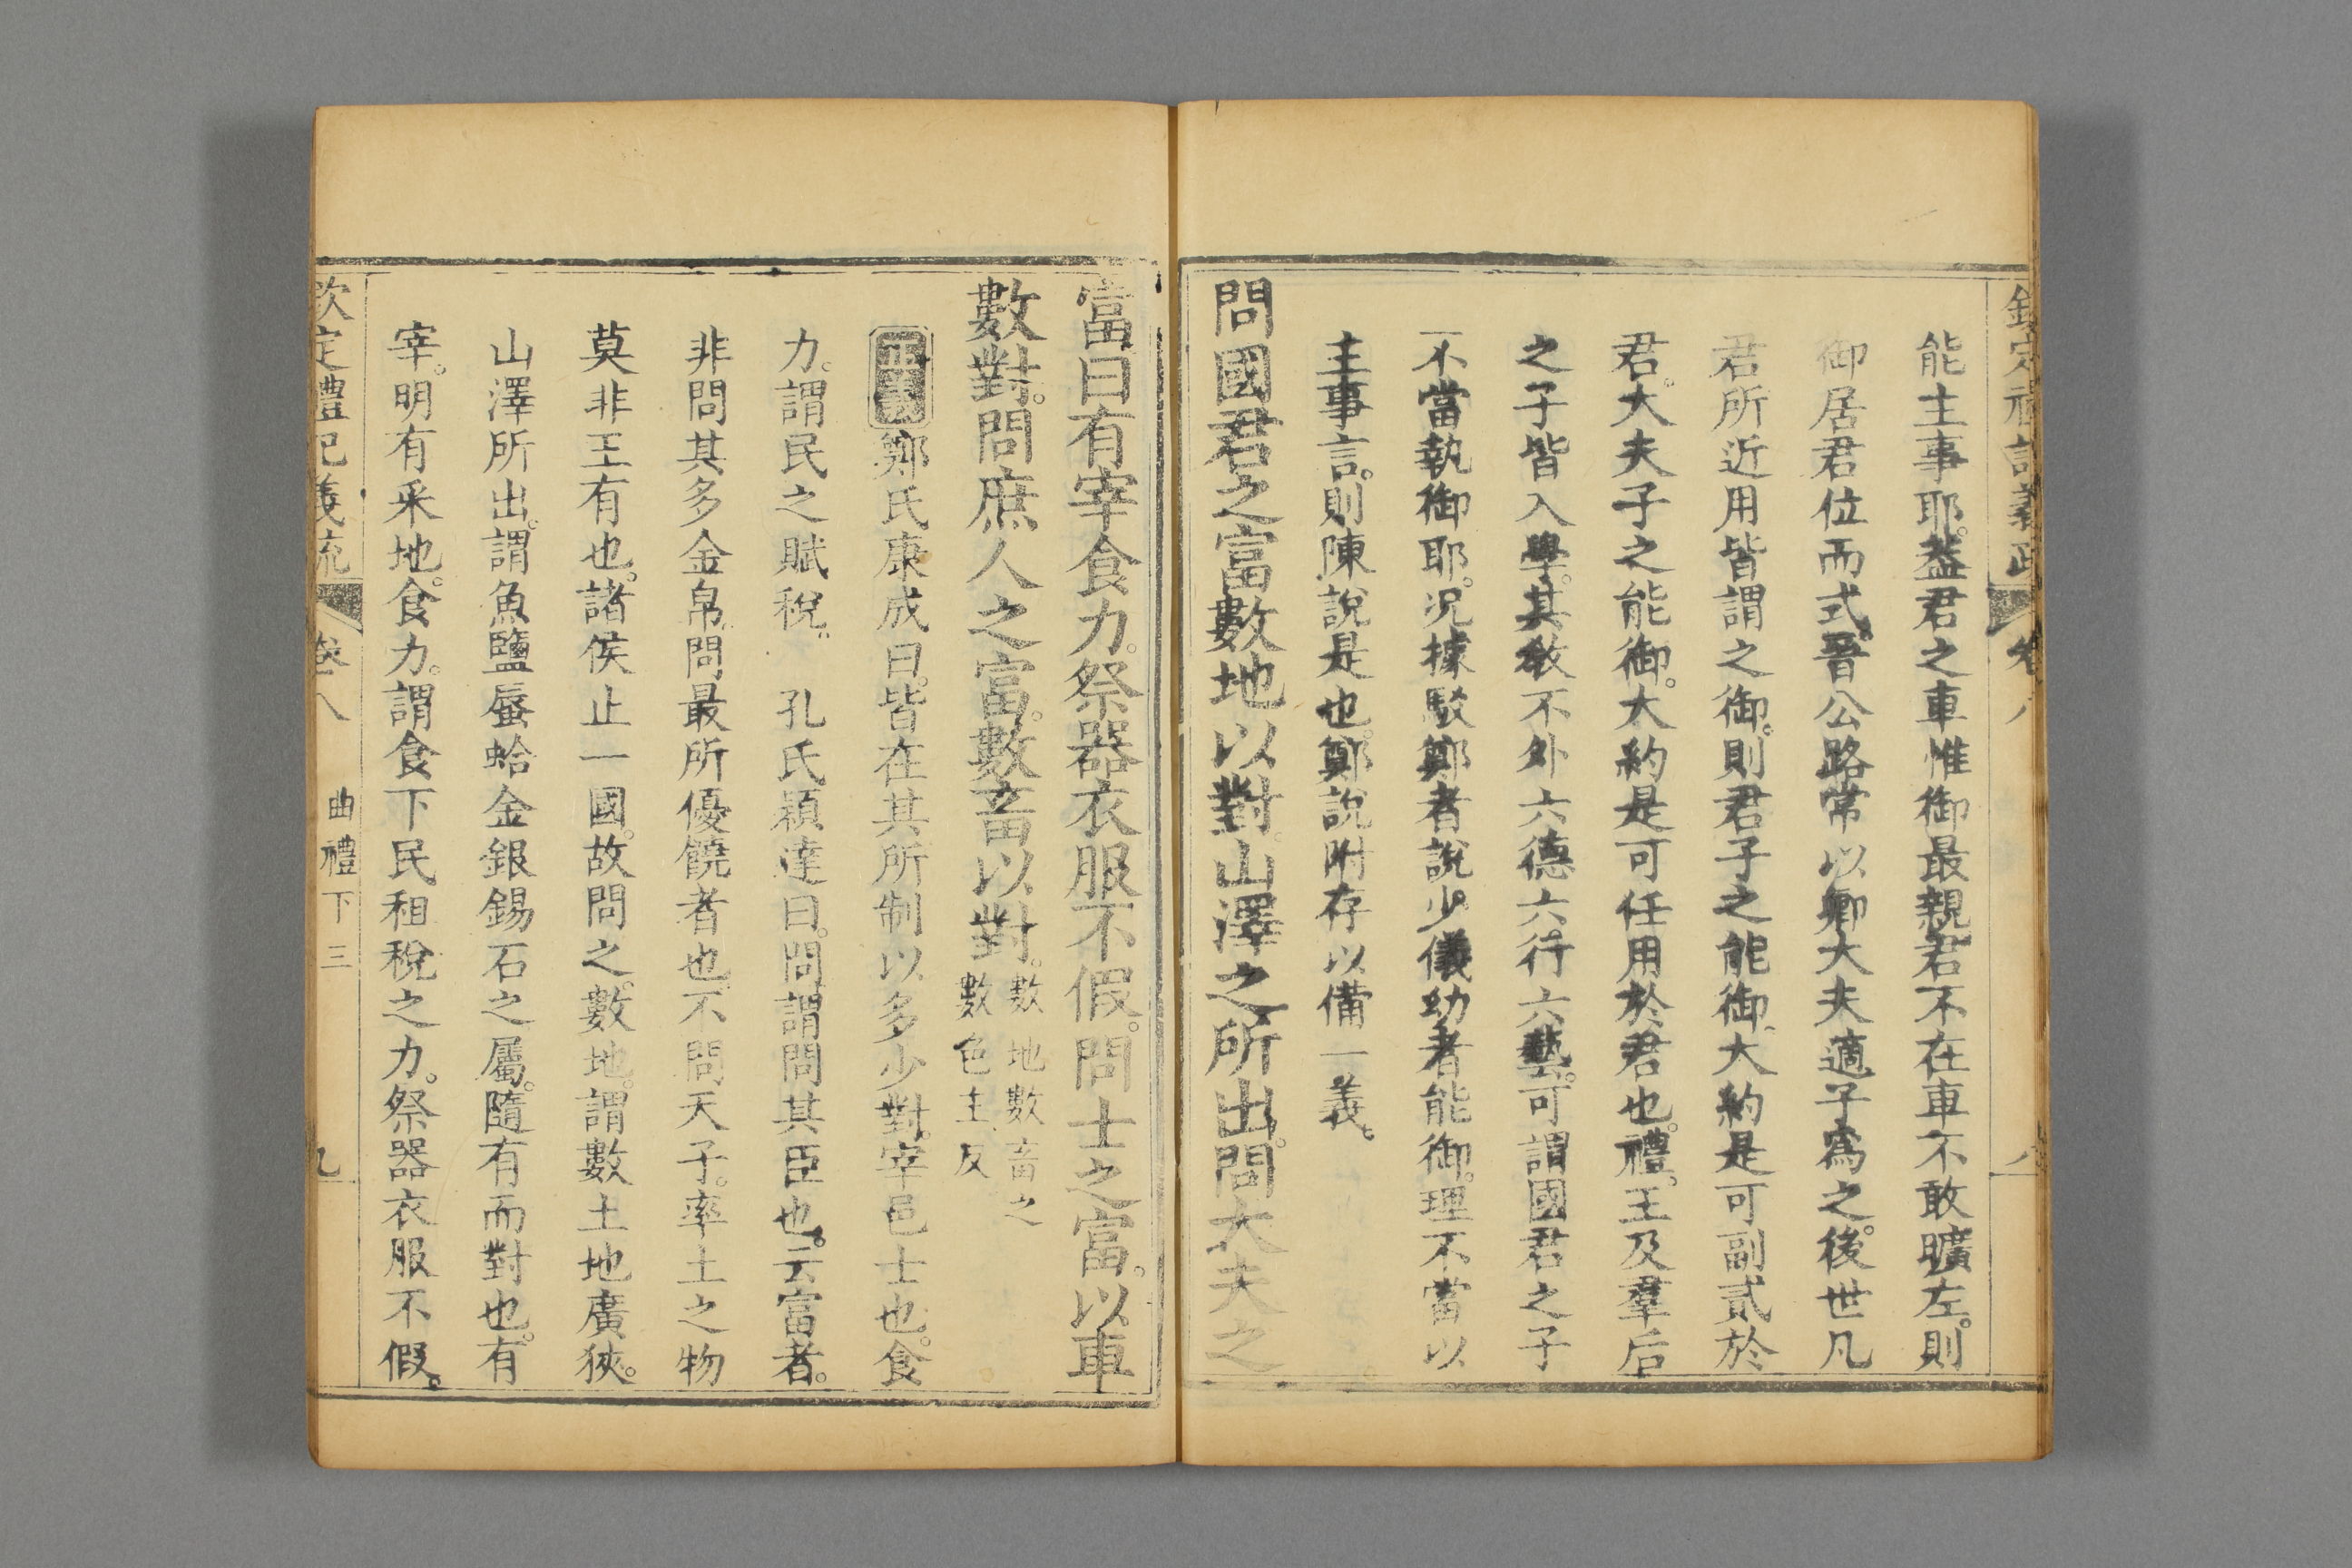 能主事耶。葢君之車惟御最親。君不在車不敢曠左。則
御居君位而式。晉公路常以卿大夫適子爲之。後世凡
君所近用皆謂之御。則君子之能御、大約是可副貳於
君。大夫子之能御。大約是可任用於君也。禮。王及羣后
之子皆入學。其敎不外六德六行六藝。可謂國君之子
不當執御耶。况據駁鄭者說。少儀幼者能御。理不當以
主事言。則陳說是也。鄭說附存以備一義。
問國君之富數地以對。山澤之所出。問大夫之
富曰有宰食力。祭器衣服不假。問士之富。以車
數對。問庶人之富。數畜以對。數地數畜之
數色主反
正義鄭氏康成曰。皆在其所制以多少對。宰邑士也。食
力。謂民之賦稅。 孔氏穎達曰。問謂問其臣也。云富者。
非問其多金帛。問最所優饒者也。不問天子。率土之物
莫非王有也。諸侯止一國。故問之。數地。謂數土地廣狹。
山澤所出。謂魚鹽蜃蛤金銀錫石之屬。隨有而對也。有
宰。明有采地。食力。謂食下民租稅之力。祭器衣服不假。
欽定禮記義疏 卷八 曲禮下三 九